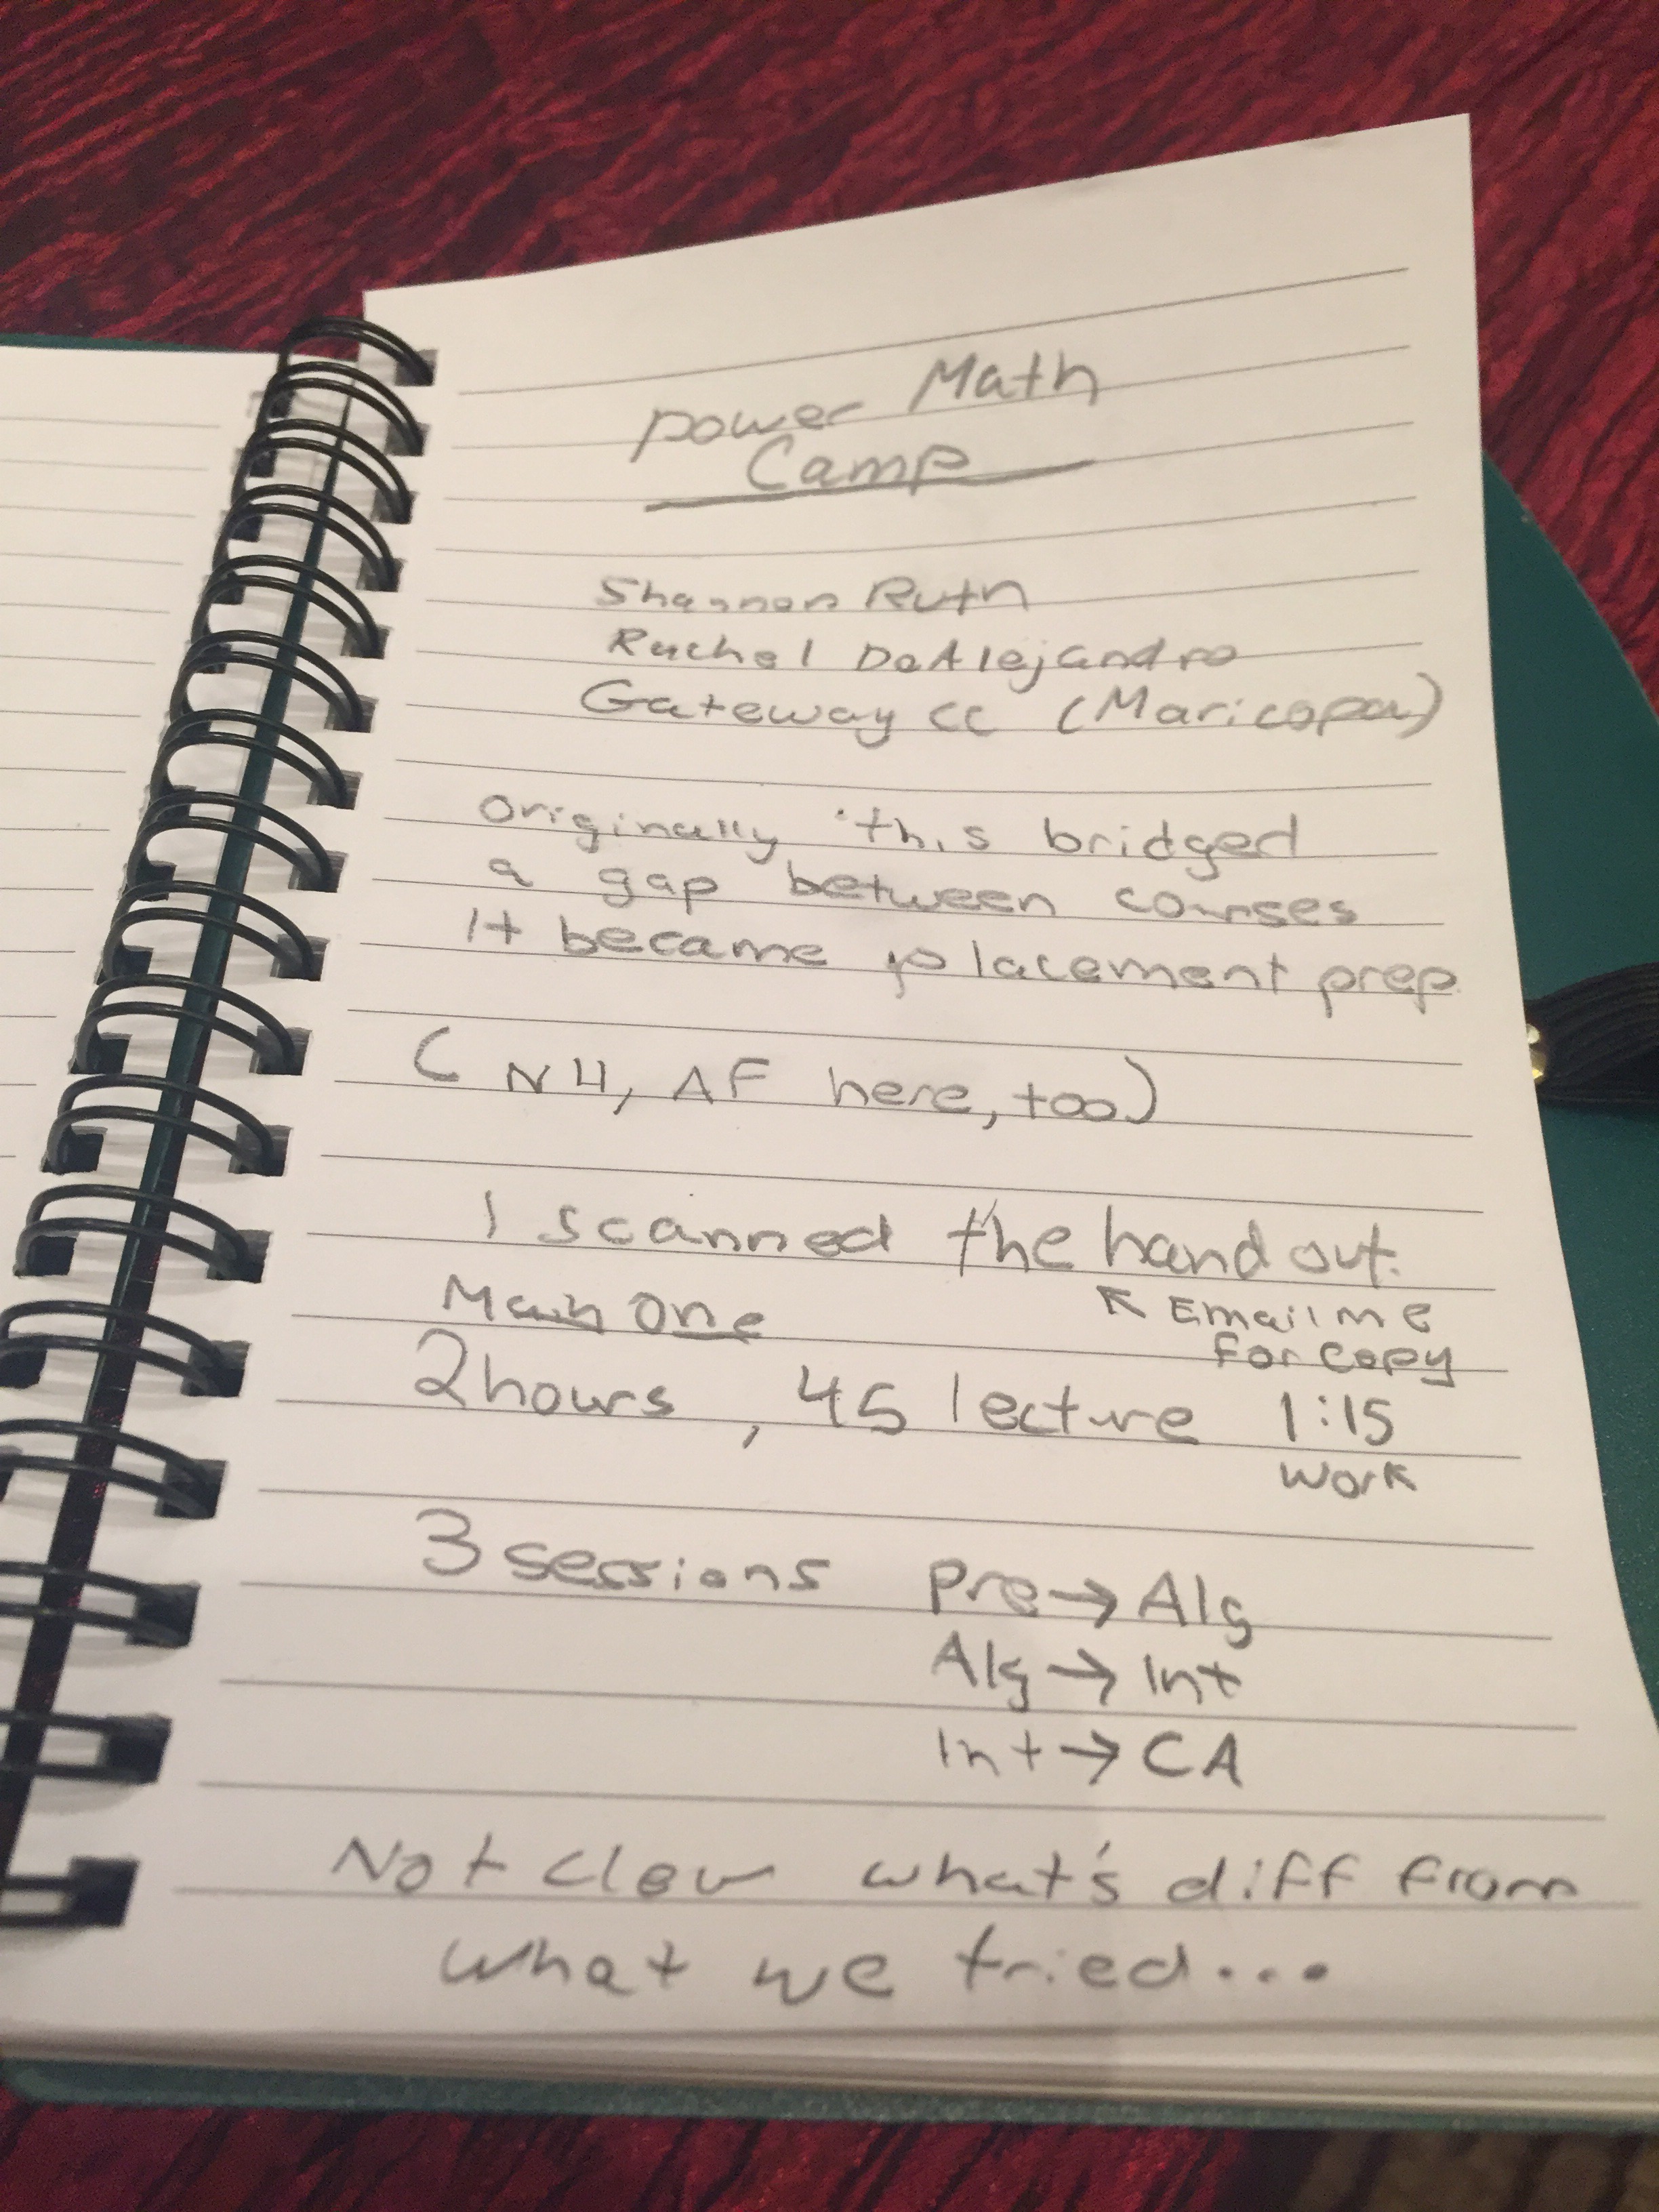 Power Math
Camp
Shannon Ruth
Rachel DeAlejandro
Gateway CC (Maricopa)
Originally this bridged
a gap between courses
It became placement prep
( NH, AF here, too)
I scanned the handout.
↖ Email me
for copy
Main One
2 hours, 45 lecture 1:15
work
3 sessions Pre → Alg
Alg → Int
Int → CA
Not clear what's diff from
what we tried...